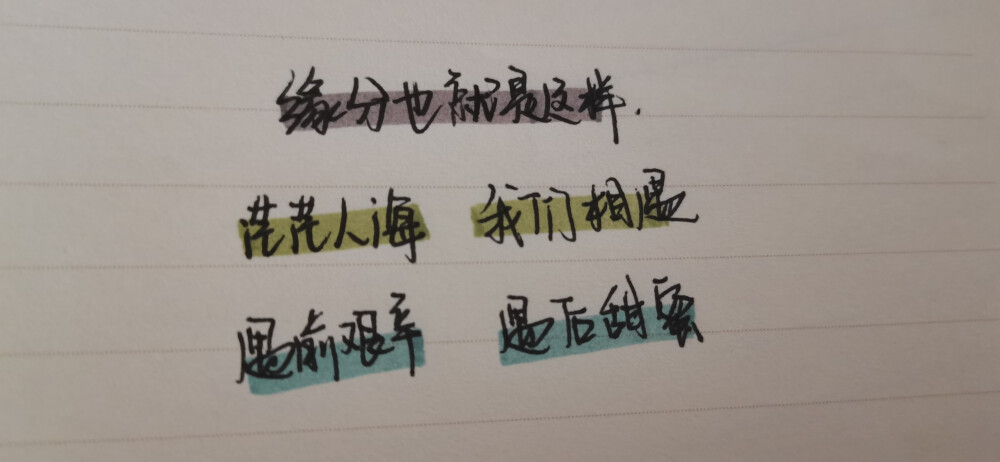 缘分也就是这样.
茫茫人海 我们相遇
遇前艰辛 遇后甜蜜